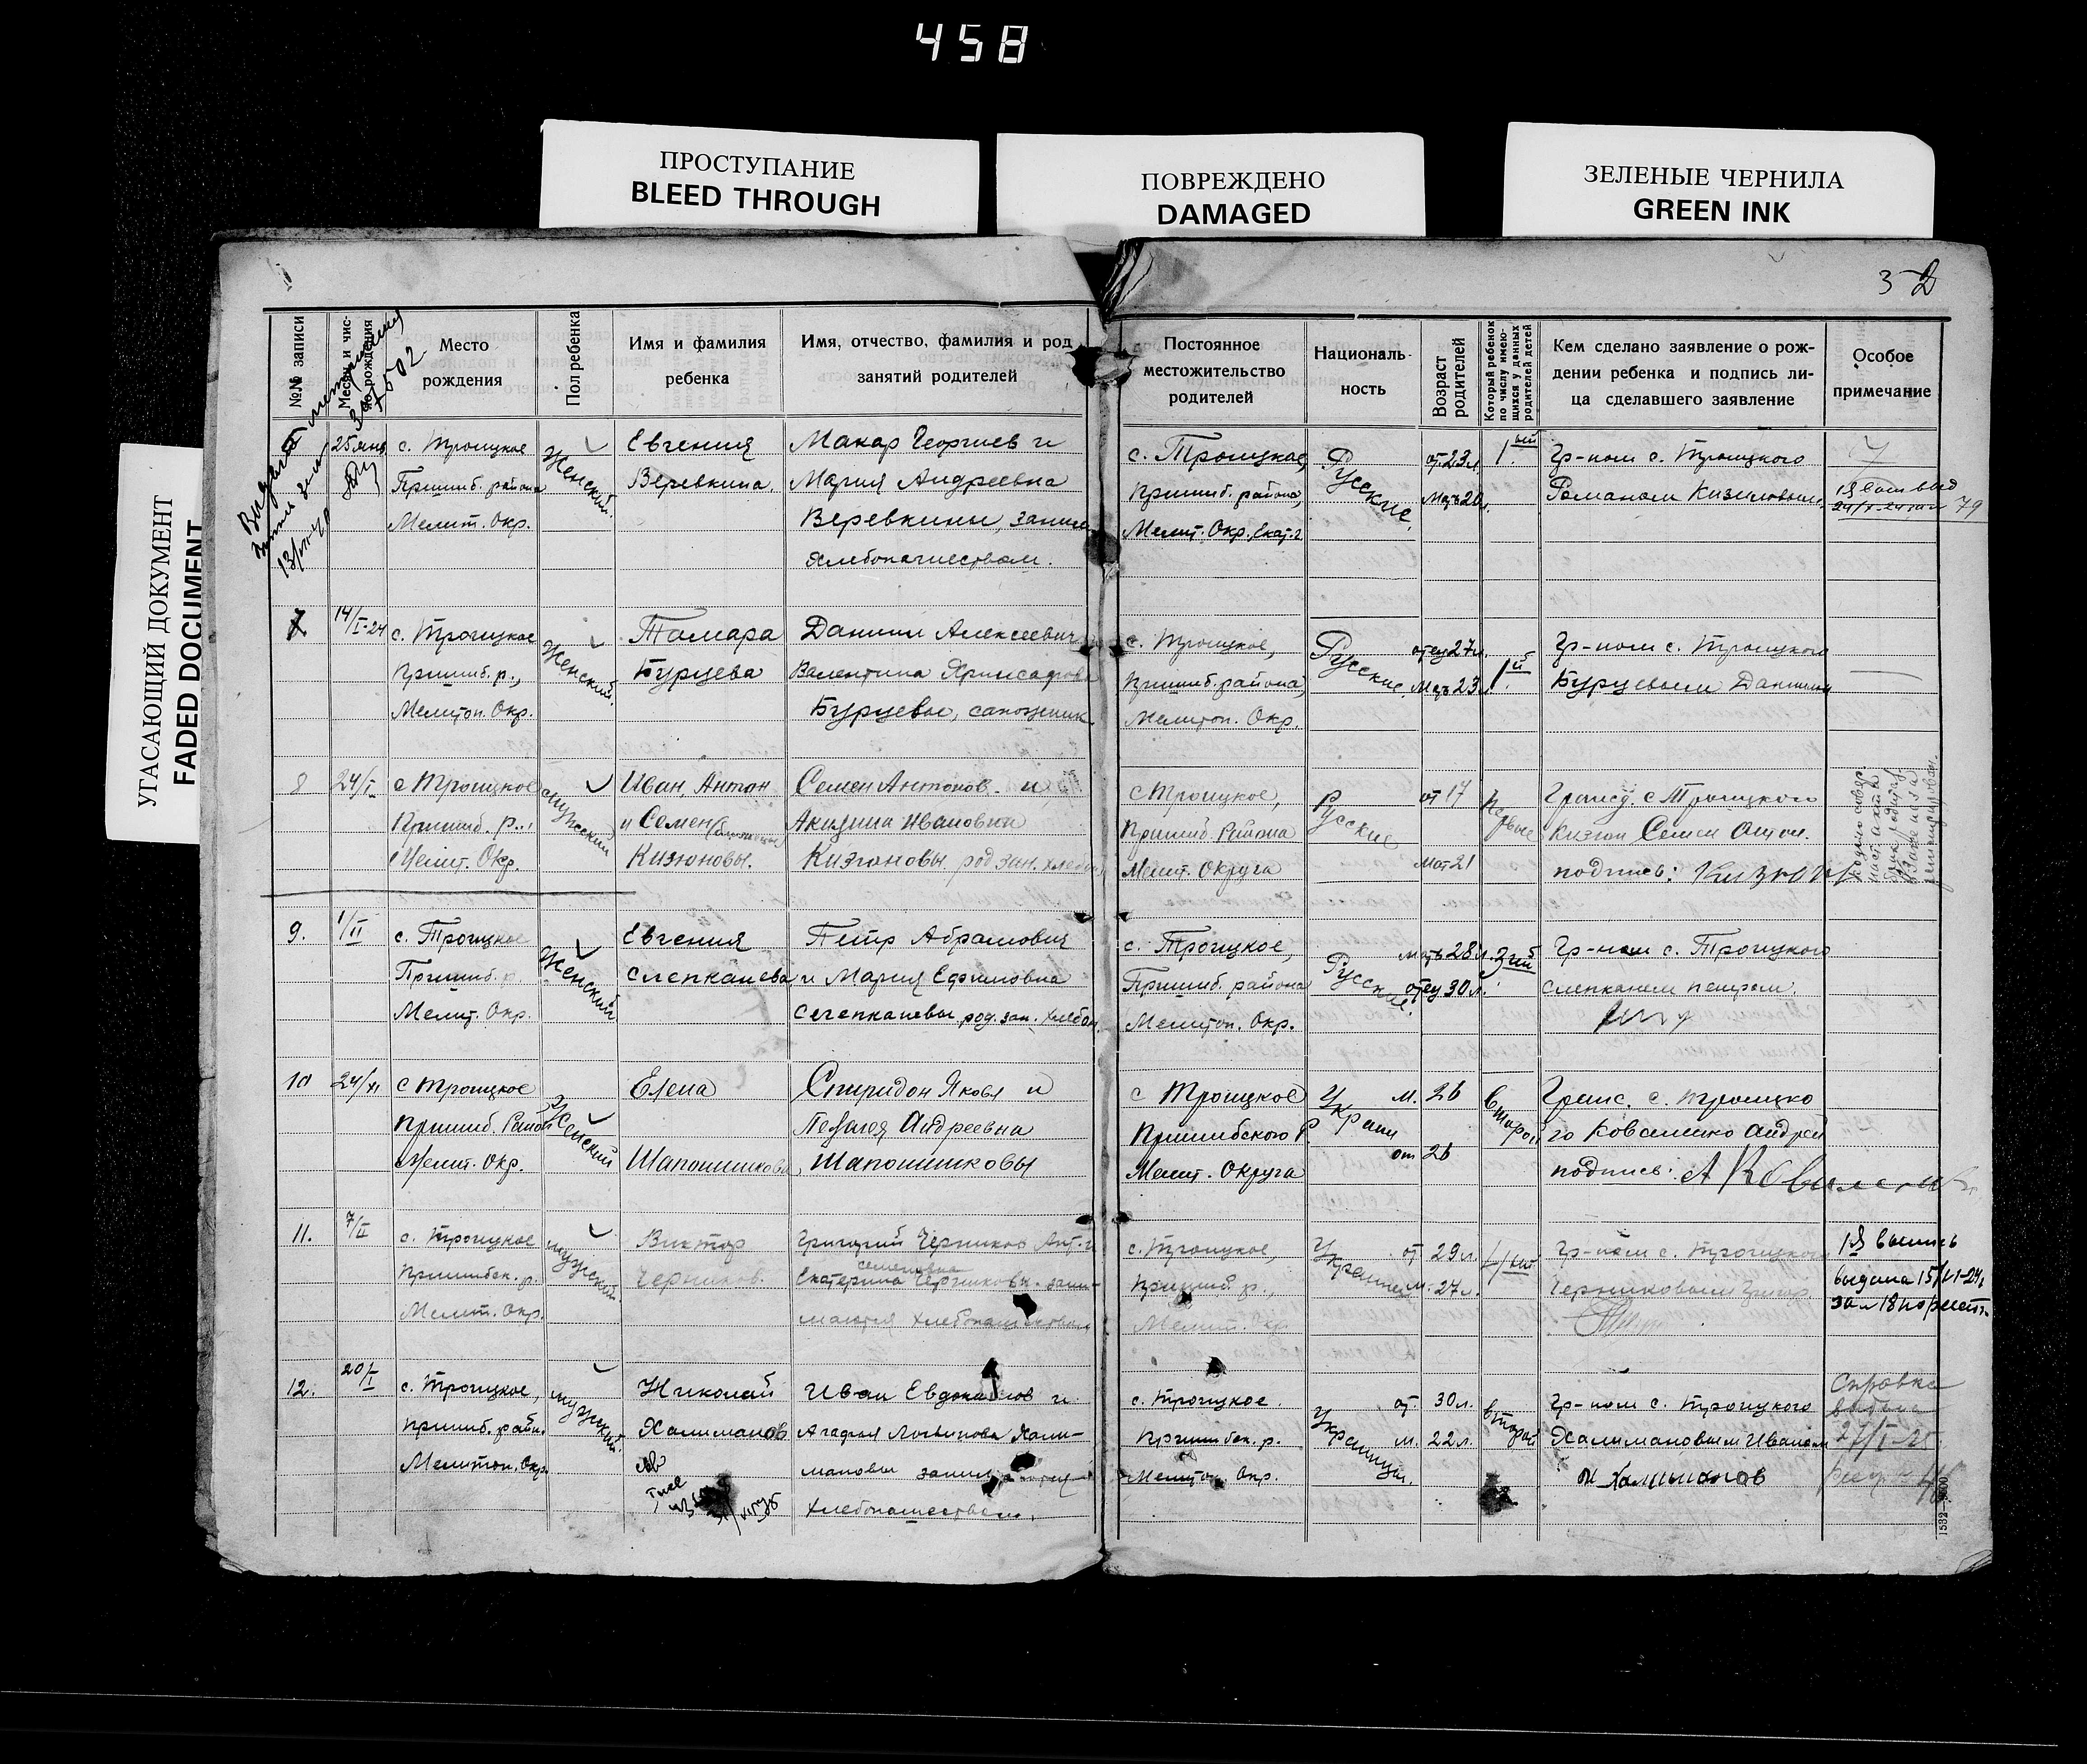 458
ПРОСТУПАНИЕ
BLEED THROUGH
ПОВРЕЖДЕНО
DAMAGED
ЗЕЛЕНЫЕ ЧЕРНИЛА
GREEN INK
УГАСАЮЩИЙ ДОКУМЕНТ
FADED DOCUMENT
3 2
№№ записи
Месяц и чис-
ло рождения
Место
рождения
Пол ребенка
Имя и фамилия
ребенка
Имя, отчество, фамилия и род
занятий родителей
Постоянное
местожительство
родителей
Националь-
ность
Возраст
родителей
Который ребенок
по числу имею-
щихся у данных
родителей детей
Кем сделано заявление о рож-
дении ребенка и подпись ли-
ца сделавшего заявление
Особое
примечание
25 янв.
с. Троицкое
Пришиб. района
Мелит. Окр.
Женский.
Евгения
Веревкина.
Макар Георгиев и
Мария Андреевна
Веревкины, заним
хлебопашеством.
с. Троицкое,
Пришиб. района,
Мелит. Окр. Екат. г
Русские.
от. 23 л.
Мать 20 л.
1.ый
Гр-ном с. Троицкого
Романом
79
14/I-24
с. Троицкое
Пришиб. р.,
Мелитоп. Окр.
Женский.
Тамара
Бурцева
Даниил Алексеевич
Валентина
Бурцевы, сапожник
с. Троицкое,
Пришиб. района,
Мелитоп. Окр.
Русские
отец 27 л.
Мать 23 л.
1.ый
Гр-ном с. Троицкого
Бурцевым Даниилом
8
24/I
с Троицкое
Пришиб. р.,
Мелит. Окр.
мужский
Иван, Антон
и Семен
Кизюновы.
Семен Антонов. и
Акилина Ивановна
Кизюновы род зан. хлебоп
с Троицкое,
Пришиб. Района
Мелит. Округа
Русские
от 17
Мат 21
Первые
Гражд. с Троицкого
Кизюн Семен Антон.
подпись:
9.
1/II
с. Троицкое
Пришиб. р.
Мелит. Окр.
Женский
Евгения
Слепканева
Петр Абрамович
и Мария Ефимовна
Слепканевы род. зан. хлебоп.
с. Троицкое,
Пришиб. района
Мелитоп. Окр.
Русские
мать 28 л.
отец 30 л.
3ий
Гр-ном с. Троицкого
Слепканем Петром.
10
24/XI
с Троицкое
Пришиб. Район
Мелит. Окр.
Женский
Елена
Шапошникова
Спиридон Яковл и
Пелагея Андреевна
Шапошниковы
с Троицкое
Пришибского Р.
Мелит. Округа
Украин
м. 26
от 26
второй
Гражд. с. Троицко
го Коваленко Андрей
подпись:
11.
7/II
с. Троицкое
Пришибск. р.
Мелит. Окр.
мужский.
Виктор
Черников.
Григорий Черников Ант. и
семеновна
Екатерина Черниковы. зани-
маются хлебопашеством
с. Троицкое,
Пришиб р.,
Мелит. Окр.
Украинцы
от 29 л.
м. 27 л.
Гр-ном с. Троицкого
Черниковым Григор.
1я выпись
выдана 15/VI-24г
12.
20/I
с. Троицкое,
Пришиб. район.
Мелитоп. Окр.
мужский.
Николай
Халиманов
Иван Евдокимов и
Агафья Логвинова Хали-
мановы
хлебопашеством.
с. Троицкое.
Пришибск. р.
Мелитоп. Окр.
Украинцы.
от. 30 л.
м. 22 л.
второй
Гр-ном с. Троицкого
Халимановым Иваном
И Халиманов
Справка
выдана
27/I-25
1532—9600